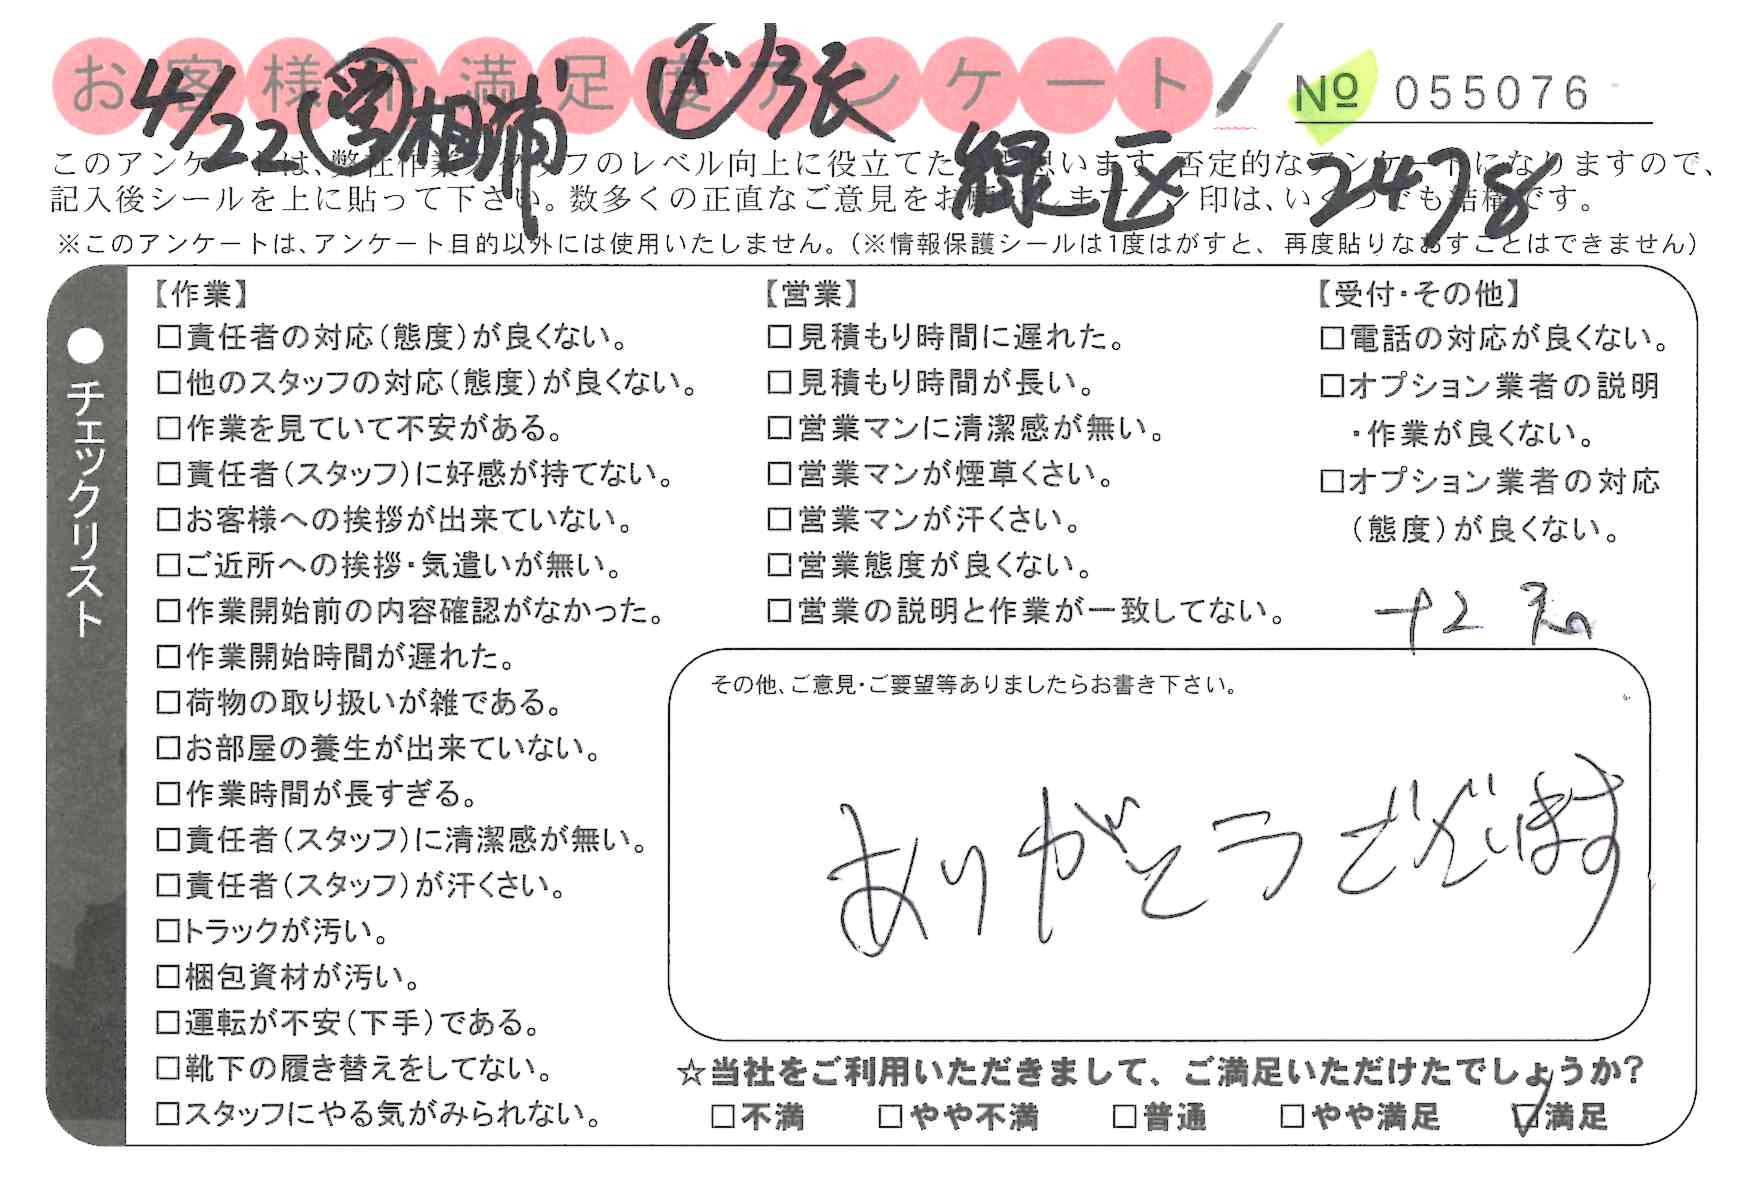 お客様不満足度アンケート
№ 055076
4/22 相浦 張
緑区 2478
このアンケートは、弊社作業スタッフのレベル向上に役立てたいと思います。否定的なアンケートになりますので、
記入後シールを上に貼って下さい。数多くの正直なご意見をお願いします。レ印は、いくつでも結構です。
※このアンケートは、アンケート目的以外には使用いたしません。（※情報保護シールは1度はがすと、再度貼りなおすことはできません）
●チェックリスト
【作業】
□責任者の対応（態度）が良くない。
□他のスタッフの対応（態度）が良くない。
□作業を見ていて不安がある。
□責任者（スタッフ）に好感が持てない。
□お客様への挨拶が出来ていない。
□ご近所への挨拶・気遣いが無い。
□作業開始前の内容確認がなかった。
□作業開始時間が遅れた。
□荷物の取り扱いが雑である。
□お部屋の養生が出来ていない。
□作業時間が長すぎる。
□責任者（スタッフ）に清潔感が無い。
□責任者（スタッフ）が汗くさい。
□トラックが汚い。
□梱包資材が汚い。
□運転が不安（下手）である。
□靴下の履き替えをしてない。
□スタッフにやる気がみられない。
【営業】
□見積もり時間に遅れた。
□見積もり時間が長い。
□営業マンに清潔感が無い。
□営業マンが煙草くさい。
□営業マンが汗くさい。
□営業態度が良くない。
□営業の説明と作業が一致してない。
【受付・その他】
□電話の対応が良くない。
□オプション業者の説明
・作業が良くない。
□オプション業者の対応
（態度）が良くない。
その他、ご意見・ご要望等ありましたらお書き下さい。
ありがとうございます
☆当社をご利用いただきまして、ご満足いただけたでしょうか？
□不満 □やや不満 □普通 □やや満足 ☑満足